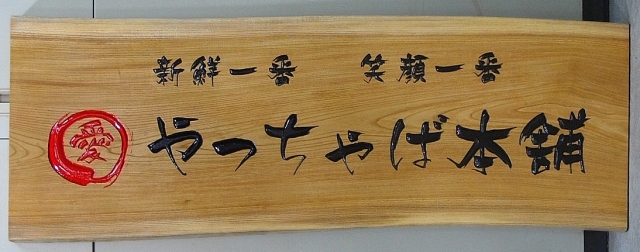 新鮮一番 笑顔一番
愛 やっちゃば本舗